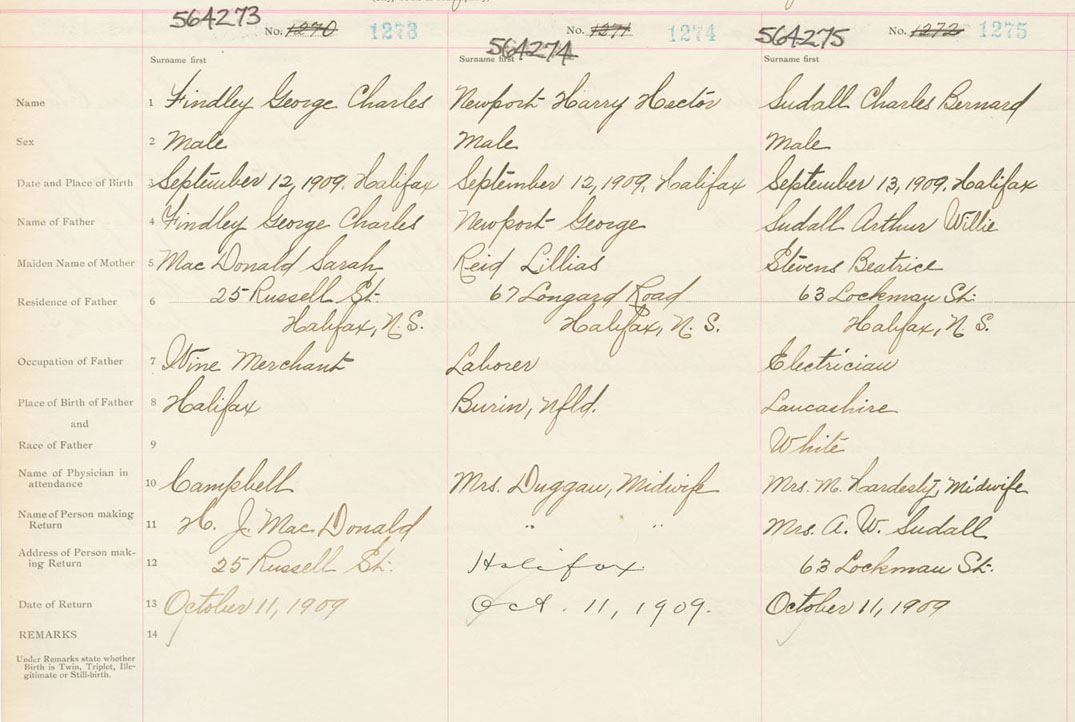 564273 No. 1270 1273
564274 No. 1271 1274
564275 No. 1272 1275
Surname first Surname first Surname first
Name 1 Findley George Charles Newport Harry Hector Sudall Charles Bernard
Sex 2 Male Male Male
Date and Place of Birth 3 September 12, 1909. Halifax September 12, 1909, Halifax September 13, 1909. Halifax
Name of Father 4 Findley George Charles Newport George Sudall Arthur Willie
Maiden Name of Mother 5 Mac Donald Sarah Reid Lillias Stevens Beatrice
Residence of Father 6 25 Russell St. 67 Longard Road 63 Lockman St.
Halifax, N. S. Halifax, N. S. Halifax, N. S.
Occupation of Father 7 Wine Merchant Laborer Electrician
Place of Birth of Father 8 Halifax Burin, Nfld. Lancashire
and
Race of Father 9 White
Name of Physician in
attendance 10 Campbell Mrs. Duggan, Midwife Mrs. M. Hardesty, Midwife
Name of Person making
Return 11 H. J. Mac Donald " " Mrs. A. W. Sudall
Address of Person mak-
ing Return 12 25 Russell St. Halifax 63 Lockman St.
Date of Return 13 October 11, 1909 Oct. 11, 1909. October 11, 1909
REMARKS 14
Under Remarks state whether
Birth is Twin, Triplet, Ille-
gitimate or Still-birth.